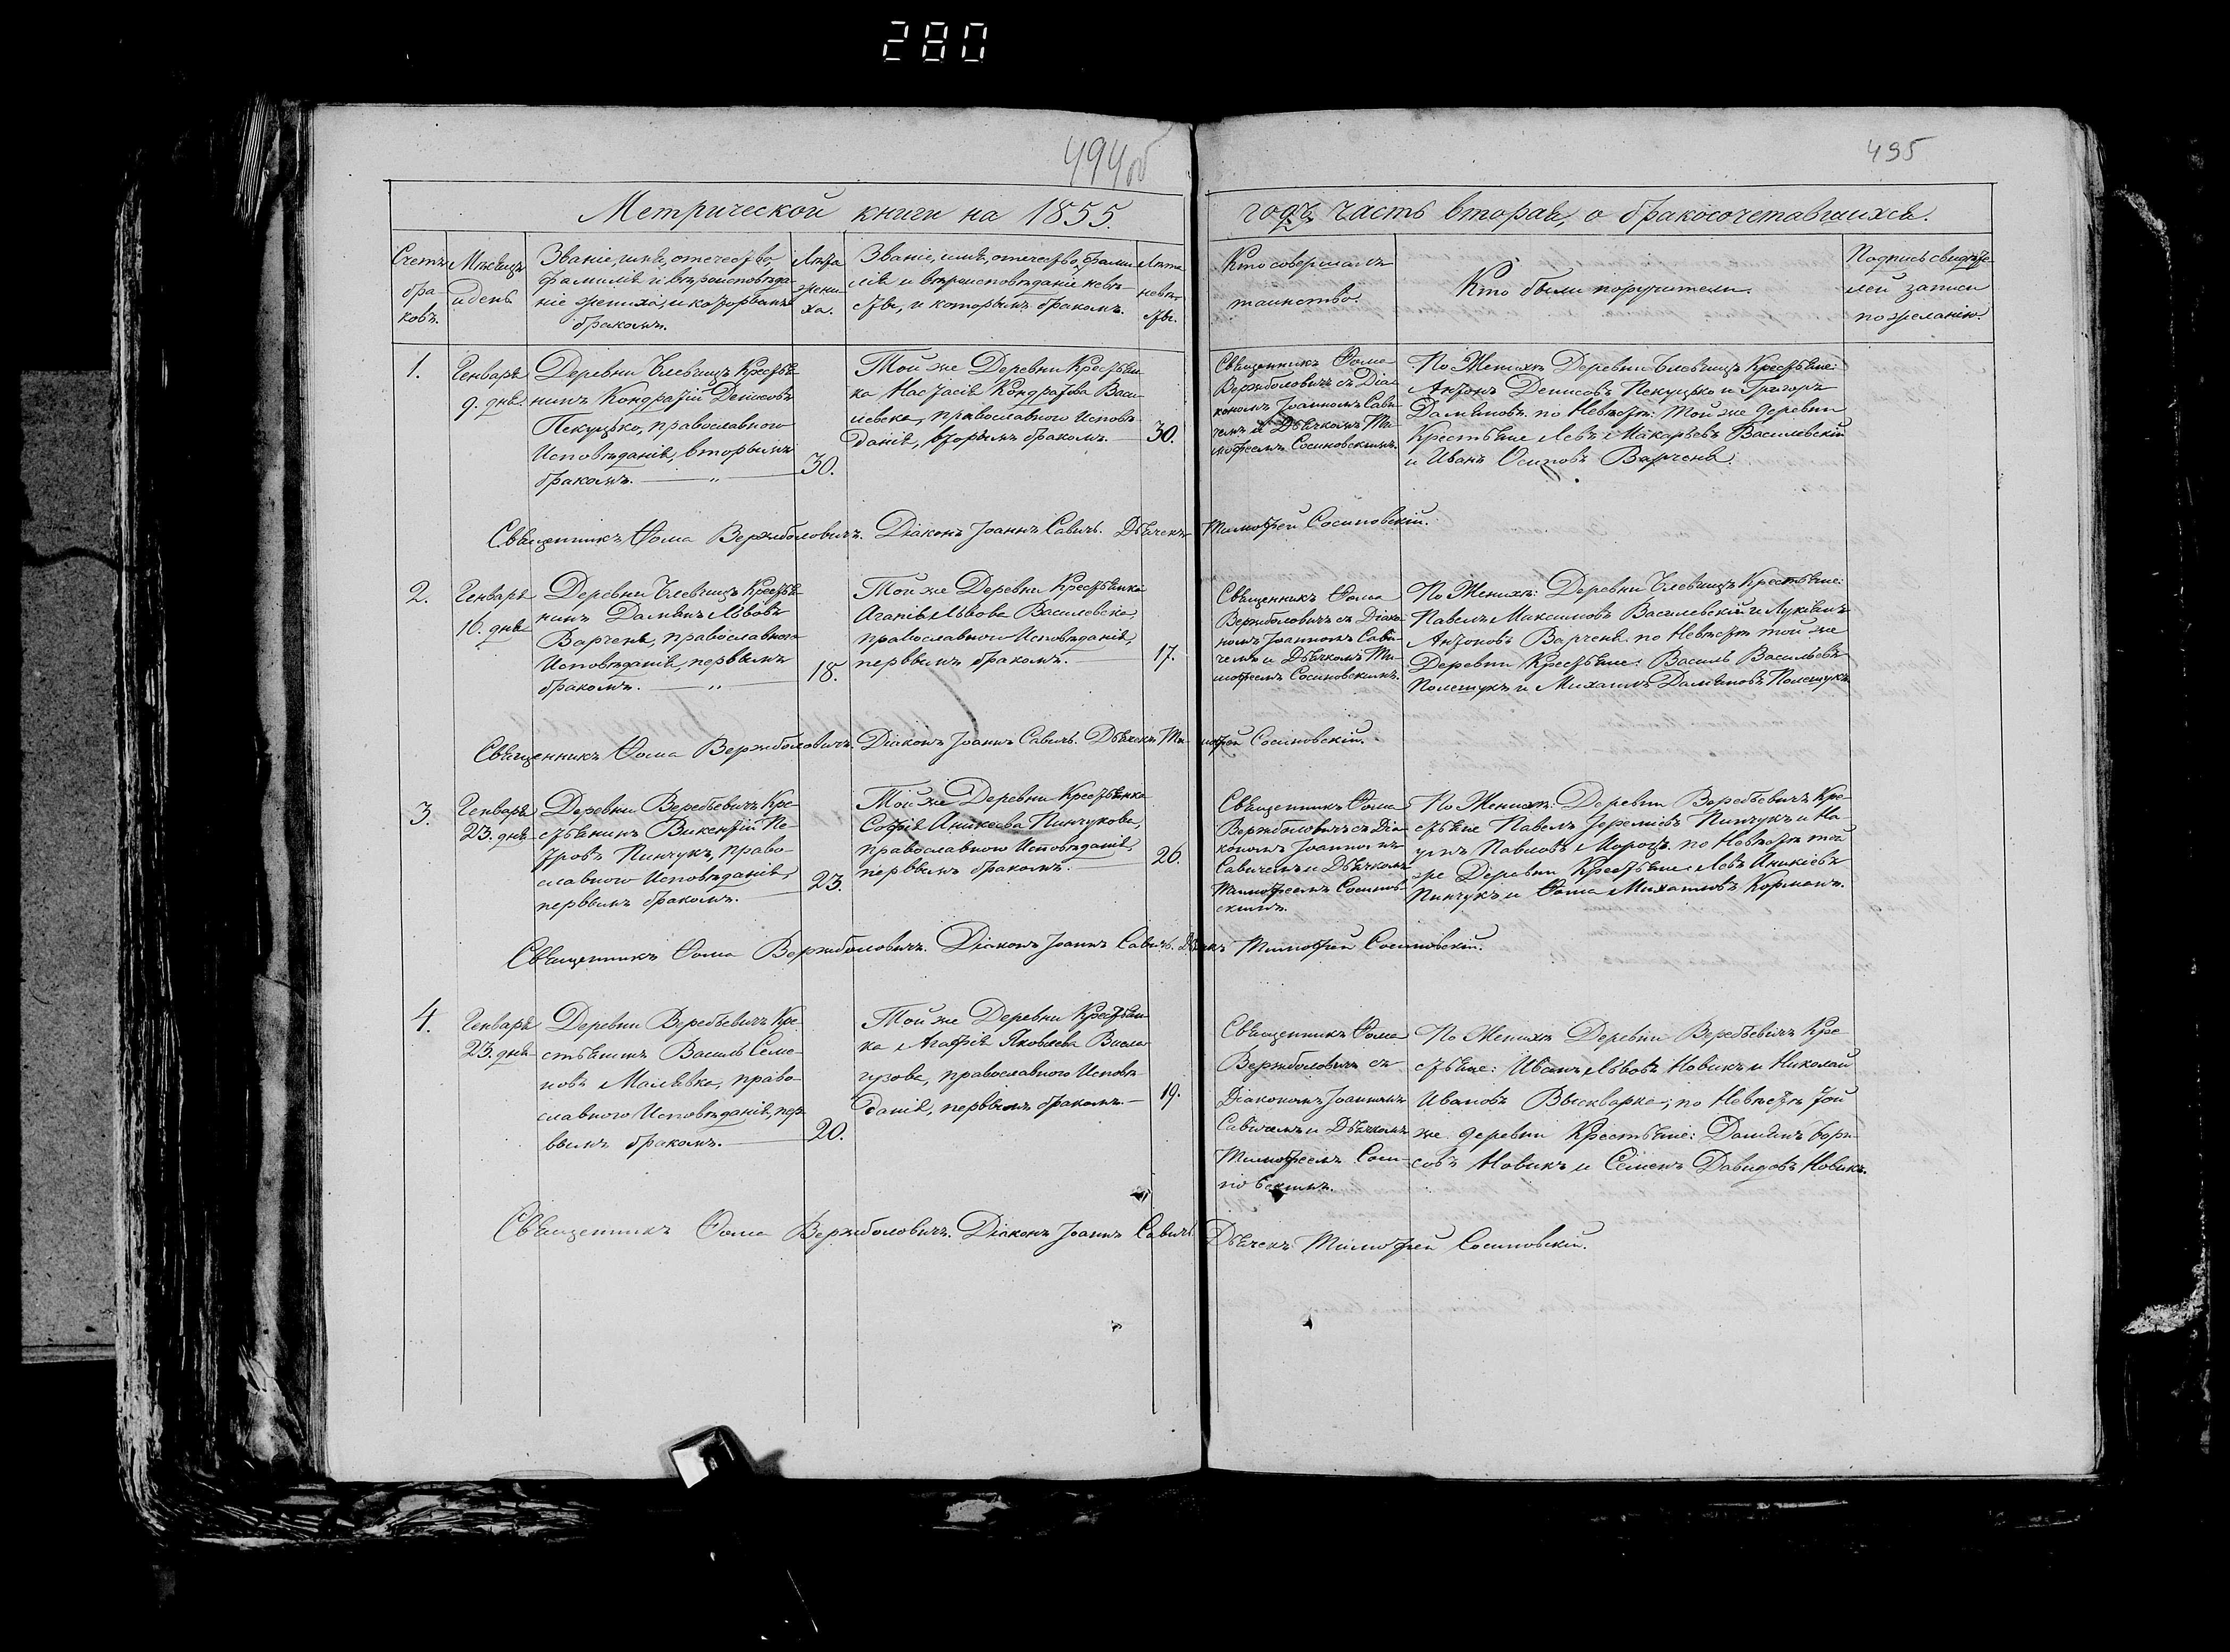 280
494 об
495
Метрической книги на 1855.
годъ часть вторая, о бракосочетавшихся.
Счетъ
бра-
ковъ.
Мѣсяцъ
и день
Званіе, имя, отечество,
фамилія и вѣроисповѣда-
ніе жениха, и которымъ
бракомъ.
Лѣта
жени-
ха.
Званіе, имя, отечество, фами-
лія и вѣроисповѣданіе невѣ-
сты, и которымъ бракомъ.
Лѣта
невѣ-
сты.
Кто совершалъ
таинство.
Кто были поручители.
Подпись свидѣте-
лей записи
по желанію.
1.
Генваря
9. дня
Деревни Блевчицъ Крестья-
нинъ Кондратій Денисовъ
Пекуцько, православнаго
Исповѣданія, вторымъ
бракомъ. — „ —
30.
Той же Деревни Крестьян-
ка Настасія Кондратова Васи-
левска, православного Исповѣ-
данія, вторымъ бракомъ. —
30.
Священникъ Фома
Вержболовичъ съ Діа-
кономъ Іоанномъ Сави-
чемъ и Дьячкомъ Ти-
мофеемъ Сосиновскимъ.
По Женихѣ Деревни Блевчицъ Крестьяне:
Антонъ Денисовъ Пекуцько и Григоръ
Дамяновъ. по Невѣстѣ: той же деревни
Крестьяне Левъ Макарьевъ Василевскій
и Иванъ Осиповъ Варченя.
Священникъ Фома Вержболовичъ. Діаконъ Іоаннъ Савичъ. Дьячекъ Тимофей Сосиновскій.
2.
Генваря
16. дня
Деревни Блевчицъ Крестья-
нинъ Дамянъ Львовъ
Варченя, православного
Исповѣданія, первымъ
бракомъ. — „ —
18.
Той же Деревни Крестьянка
Агапія Львова Василевска,
православного Исповѣданія,
первымъ бракомъ. —
17.
Священникъ Фома
Вержболовичъ съ Діако-
номъ Іоанномъ Сави-
чемъ и Дьячкомъ Ти-
мофеемъ Сосиновскимъ.
По Женихѣ: Деревни Блевчицъ Крестьяне:
Павелъ Максимовъ Василевскій и Лукіанъ
Антоновъ Варченя. по Невѣстѣ той же
Деревни Крестьяне: Василь Васильевъ
Полещукъ и Михаилъ Дамяновъ Полещукъ
Священникъ Фома Вержболовичъ. Діаконъ Іоаннъ Савичъ. Дьячекъ Тимофей Сосиновскій.
3.
Генваря
23. дня
Деревни Веребьевичъ Кре-
стьянинъ Викентій Пе-
тровъ Пинчукъ, право-
славного Исповѣданія,
первымъ бракомъ. —
23.
Той же Деревни Крестьянка
Софія Аникеева Пинчукова,
православного Исповѣданія,
первымъ бракомъ. —
26.
Священникъ Фома
Вержболовичъ съ Діа-
кономъ Іоанномъ
Савичемъ и Дьячкомъ
Тимофеемъ Сосинов-
скимъ.
По Женихѣ: Деревни Веребьевичъ Кре-
стьяне Павелъ Іереміевъ Пинчукъ и На-
умъ Павловъ Морозъ. по Невѣстѣ той
же Деревни Крестьяне: Левъ Аникіевъ
Пинчукъ и Фома Михаиловъ Корманъ.
Священникъ Фома Вержболовичъ. Діаконъ Іоаннъ Савичъ. Дьячекъ Тимофей Сосиновскій.
4.
Генваря
23. дня
Деревни Веребьевичъ Кре-
стьянинъ Василь Семе-
новъ Малявка, право-
славного Исповѣданія, пер-
вымъ бракомъ. —
20.
Той же Деревни Крестьян-
ка Агафія Яковлева
православного Исповѣ-
данія, первымъ бракомъ. —
19.
Священникъ Фома
Вержболовичъ съ
Діакономъ Іоанномъ
Савичемъ и Дьячкомъ
Тимофеемъ Соси-
новскимъ.
По Женихѣ Деревни Веребьевичъ Кре-
стьяне: Иванъ Львовъ Новикъ и Николай
Ивановъ Выскварка; по Невѣстѣ той
же деревни Крестьяне: Дамянъ Бори-
совъ Новикъ и Семенъ Давидовъ Новикъ.
Священникъ Фома Вержболовичъ. Діаконъ Іоаннъ Савичъ. Дьячекъ Тимофей Сосиновскій.